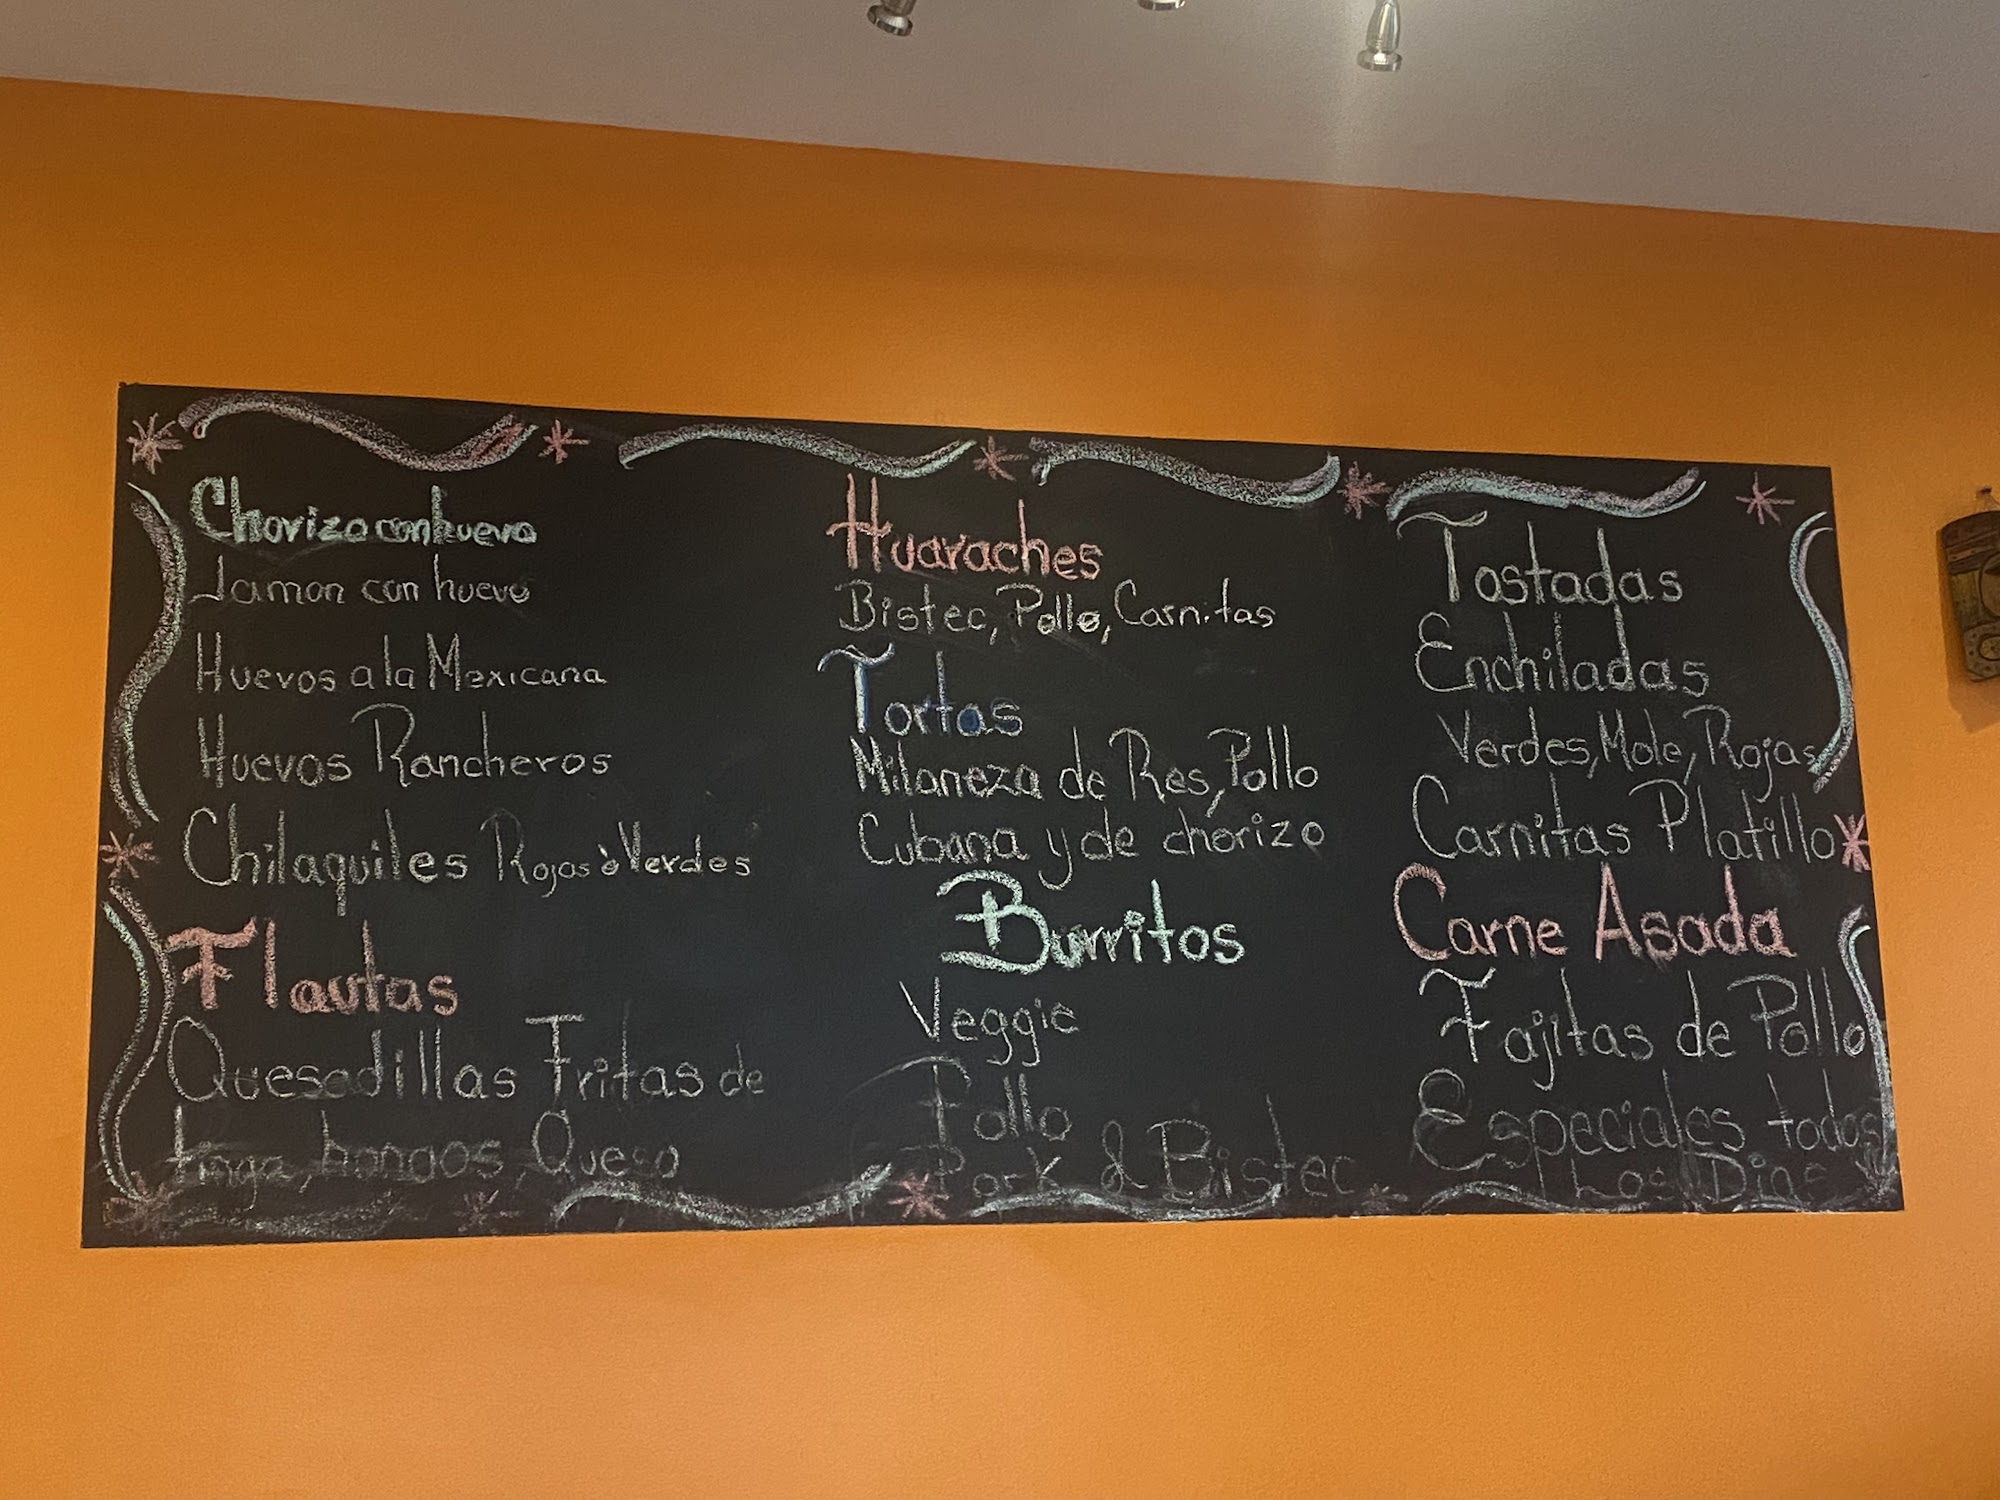 Chorizo con huevo
Jamon con huevo
Huevos a la Mexicana
Huevos Rancheros
Chilaquiles Rojas ò Verdes
Flautas
Quesadillas Fritas de
tinga, hongos, Queso
Huaraches
Bistec, Pollo, Carnitas
Tortas
Milaneza de Res, Pollo
Cubana y de chorizo
Burritos
Veggie
Pollo
Pork & Bistec
Tostadas
Enchiladas
Verdes, Mole, Rojas
Carnitas Platillo
Carne Asada
Fajitas de Pollo
Especiales todos
Los Dias